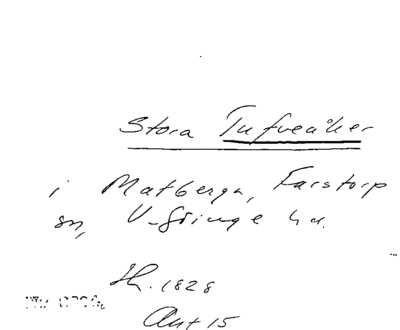 Stora Tufveåker
i Matberga, Farstorp
sn, V-Göinge hd.
Sk. 1828
Akt 15